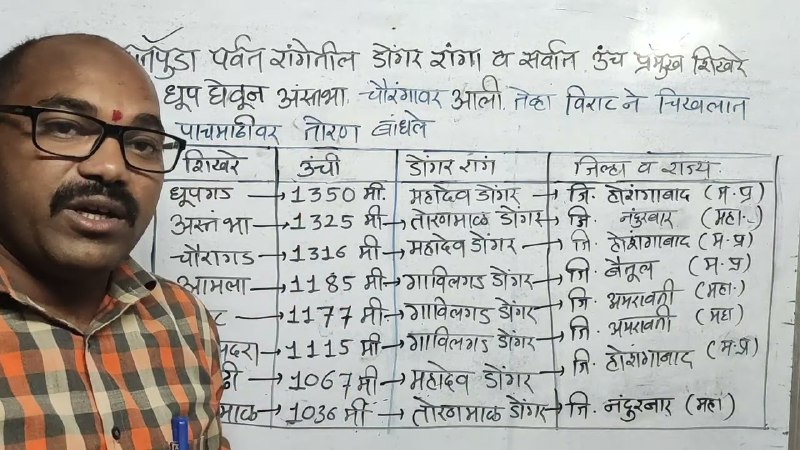 पर्वत रांगेतील डोंगर रांगा व सर्वात उंच प्रमुख शिखरे
धूप घेवून अस्तंभा चौरंगावर आली तेव्हा विराट ने चिखलात
पाचमाढीवर तोरण बांधले
शिखरे उंची डोंगर रांग जिल्हा व राज्य
धूपगड → 1350 मी. महादेव डोंगर → जि. होशंगाबाद (म.प्र)
अस्तंभा → 1325 मी → तोरणमाळ डोंगर → जि. नंदुरबार (महा.)
चौरागड → 1316 मी → महादेव डोंगर → जि. होशंगाबाद (म.प्र)
आमला → 1185 मी → गाविलगड डोंगर → जि. बैतूल (म.प्र)
→ 1177 मी → गाविलगड डोंगर → जि. अमरावती (महा.)
→ 1115 मी → गाविलगड डोंगर → जि. अमरावती (महा)
→ 1067 मी → महादेव डोंगर → जि. होशंगाबाद (म.प्र)
→ 1036 मी → तोरणमाळ डोंगर → जि. नंदुरबार (महा)